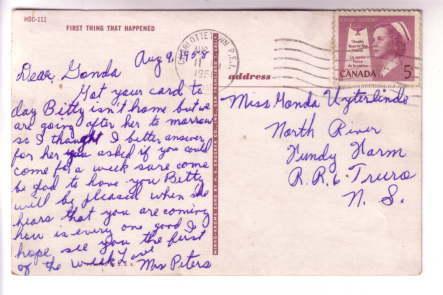 HOC-111
FIRST THING THAT HAPPENED
Aug 9, 1958
Dear Gonda
Got your card to
day Bitty isn't home but we
are going after her to morrow
so I thought I better answer
for her you asked if you could
come for a week sure come
be glad to have you Bitty
will be pleased when she
hears that you are coming
how is every one good I
hope see you the first
of the week Love
Mrs Peters
CHARLOTTETOWN P.E.I.
AUG
11
1958
CANADA
5
address
Miss Gonda Uyterlinde
North River
Hundy Harm
R.R. 6 Truro
N. S.